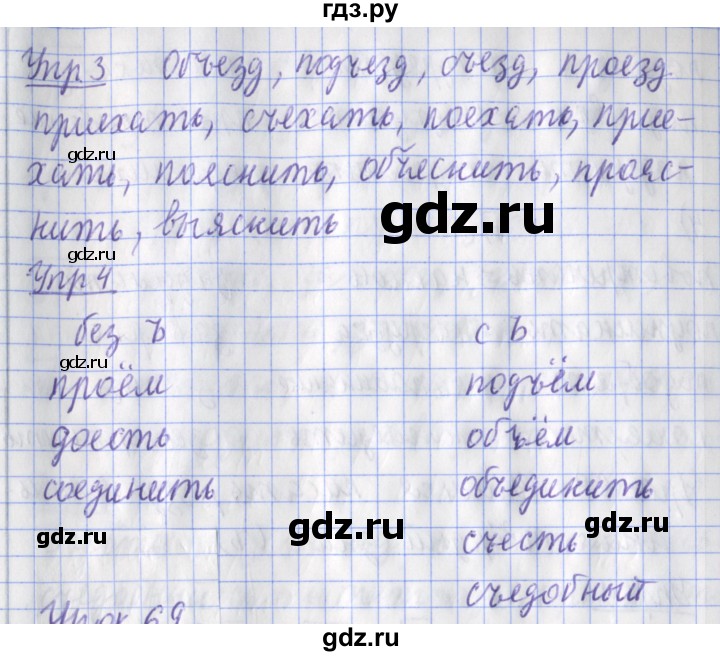 гдз.ру
Упр 3 Объезд, подъезд, съезд, проезд
приехать, съехать, поехать, прие-
gdz.ru
хать, пояснить, объяснить, прояс-
gdz.ru
нить, выяснить
gdz.ru
Упр 4
без ъ с ъ
gdz.ru
проём подъём
доесть объём
соединить объединить
gdz.ru gdz.ru gdz.ru
съесть
съедобный
Урок 69
gdz.ru